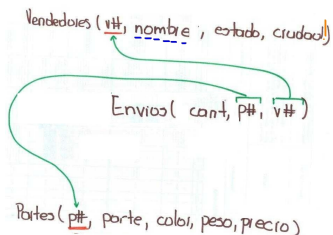 Vendedores (v#, nombre, estado, ciudad)
Envios( cant, p#, v#)
Partes( p#, parte, color, peso, precio)